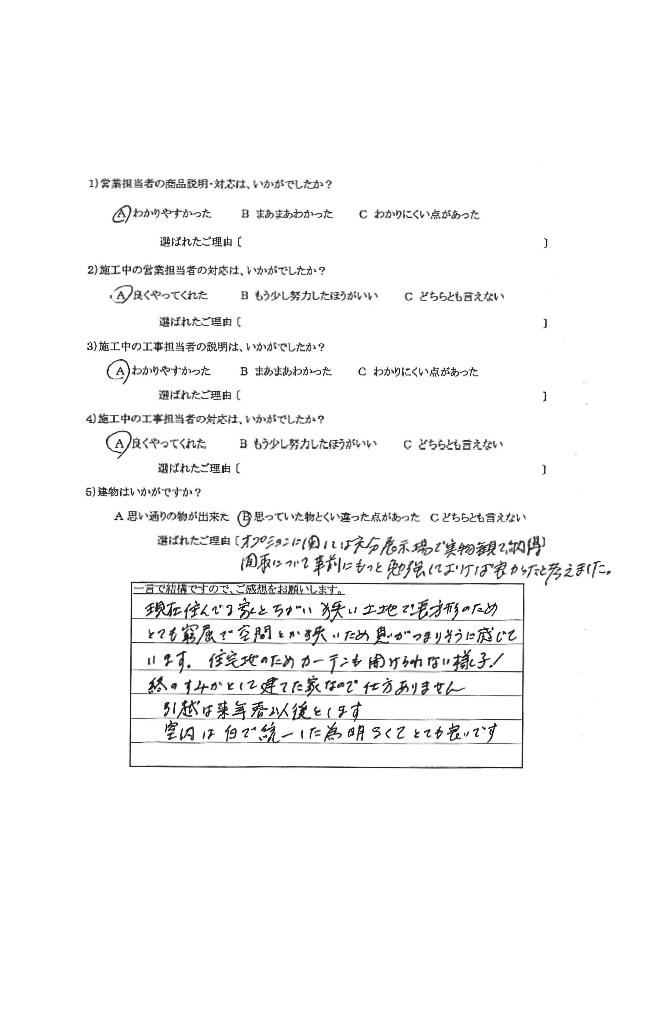 1)営業担当者の商品説明・対応は、いかがでしたか?
A わかりやすかった B まあまあわかった C わかりにくい点があった
選ばれたご理由〔 〕
2)施工中の営業担当者の対応は、いかがでしたか?
A 良くやってくれた B もう少し努力したほうがいい C どちらとも言えない
選ばれたご理由〔 〕
3)施工中の工事担当者の説明は、いかがでしたか?
A わかりやすかった B まあまあわかった C わかりにくい点があった
選ばれたご理由〔 〕
4)施工中の工事担当者の対応は、いかがでしたか?
A 良くやってくれた B もう少し努力したほうがいい C どちらとも言えない
選ばれたご理由〔 〕
5)建物はいかがですか?
A 思い通りの物が出来た B 思っていた物とくい違った点があった C どちらとも言えない
選ばれたご理由〔オプションに関しては 展示場で実物観て納得〕
間取について事前にもっと勉強しておけば良かったと考えました。
一言で結構ですので、ご感想をお願いします。
現在住んでる家とちがい狭い土地で長方形のため
とても窮屈で空間とかが狭いため息がつまりそうに感じて
います。住宅地のためカーテンも開けられない様子!
終のすみかとして建てた家なので仕方ありません
引越は来年春以後とします
室内は白で統一した為明るくてとても良いです